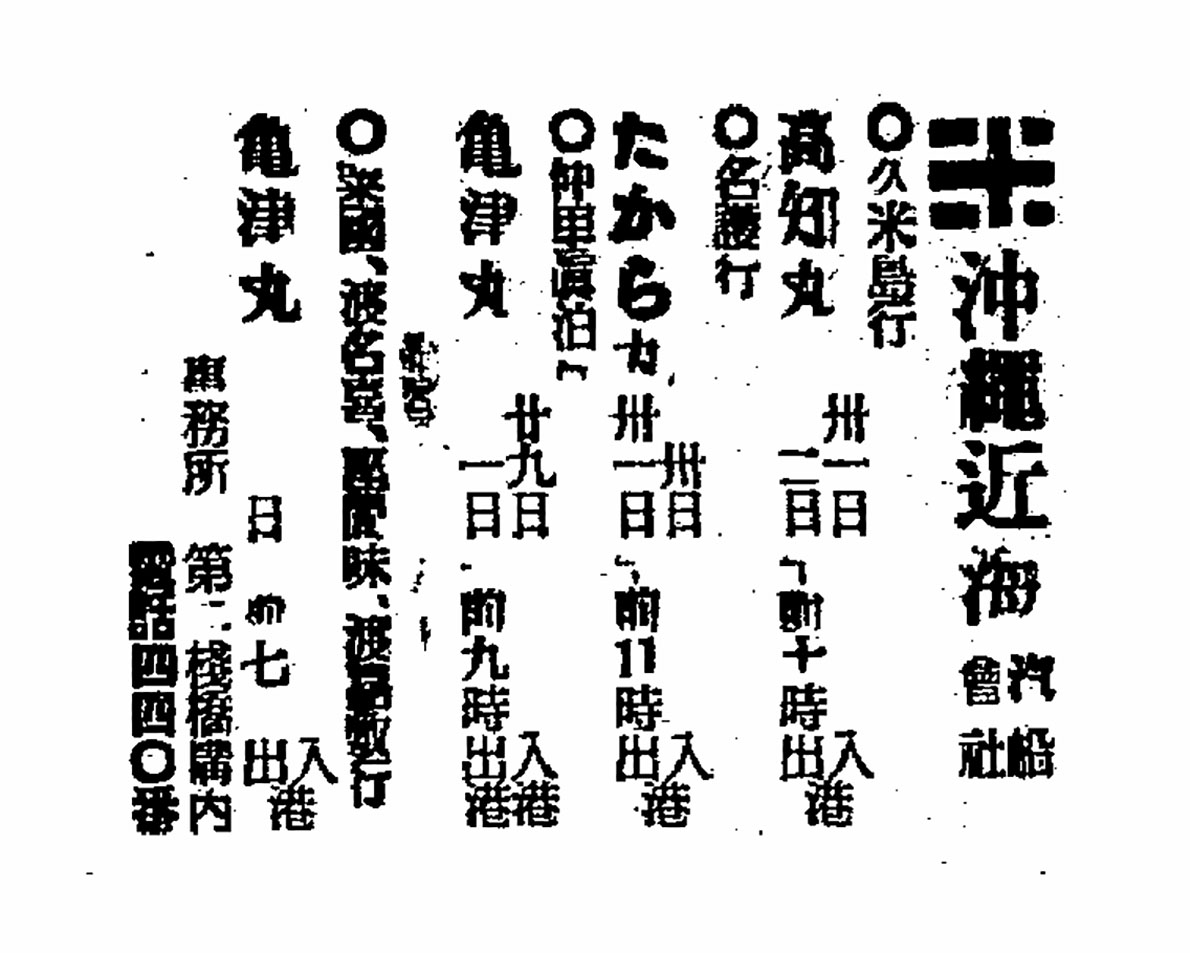 沖縄近海汽船會社
○久米島行
高知丸
卅一日
二日前十時
入出港
○名護行
たから丸
卅日
卅一日前11時
入出港
○仲里眞泊
亀津丸
廿九日入港
一日前九時出港
○粟國、渡名喜、座間味、渡嘉敷行
亀津丸
日 前七
入出港
事務所 第二棧橋構内
電話四四〇番